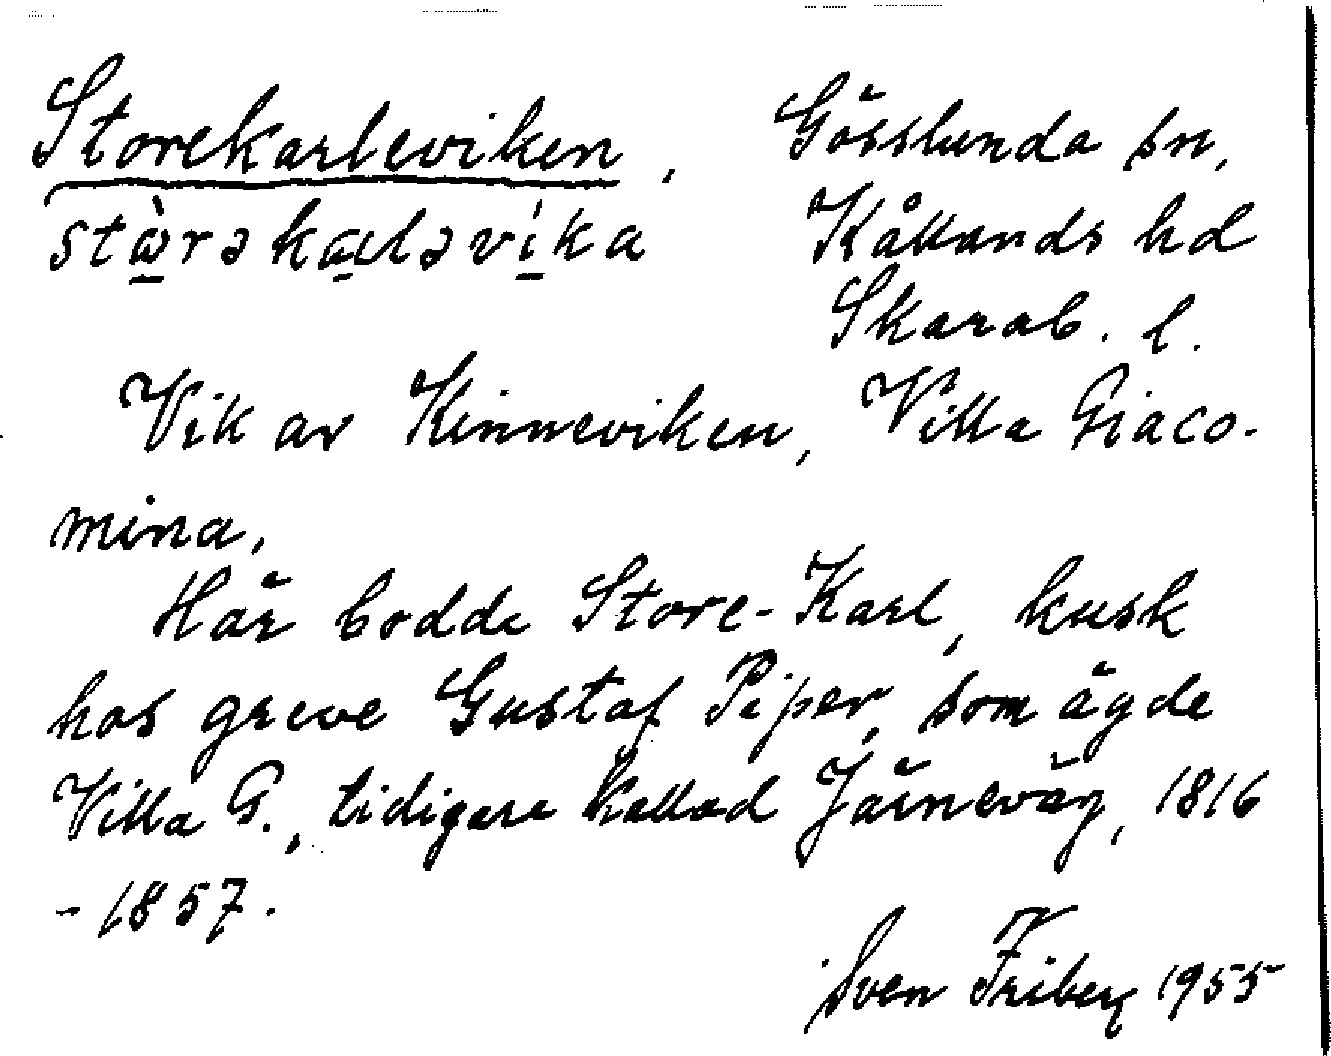 Storekarleviken, Gösslunda sn,
stὼrəkaləvíka Kållands hd
Skarab. l.
Vik av Kinneviken, Villa Giaco-
mina.
Här bodde Store-Karl, kusk
hos greve Gustaf Piper, som ägde
Villa G., tidigare kallad Järneväg, 1816
- 1857.
Sven Friberg 1955